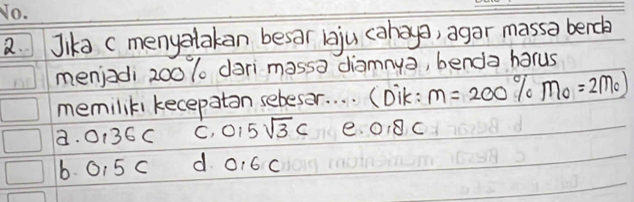 No.
2. Jika c menyatakan besar laju cahaya, agar massa benda
menjadi 200% dari massa diamnya, benda harus
memiliki kecepatan sebesar.... (Dik: m = 200% m₀ = 2m₀)
a. 0,36 c c. 0,5√3 c e. 0,8 c
b. 0,5 c d. 0,6 c